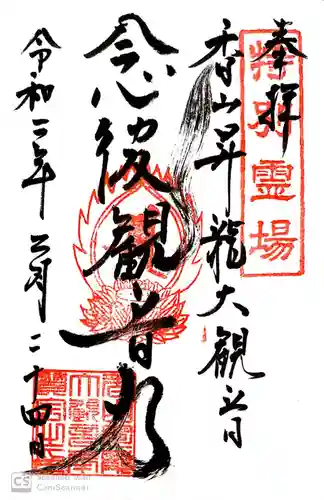 奉拝
特別霊場
香山昇龍大観音
念彼観音力
令和二年二月二十四日
CS Scanned with CamScanner